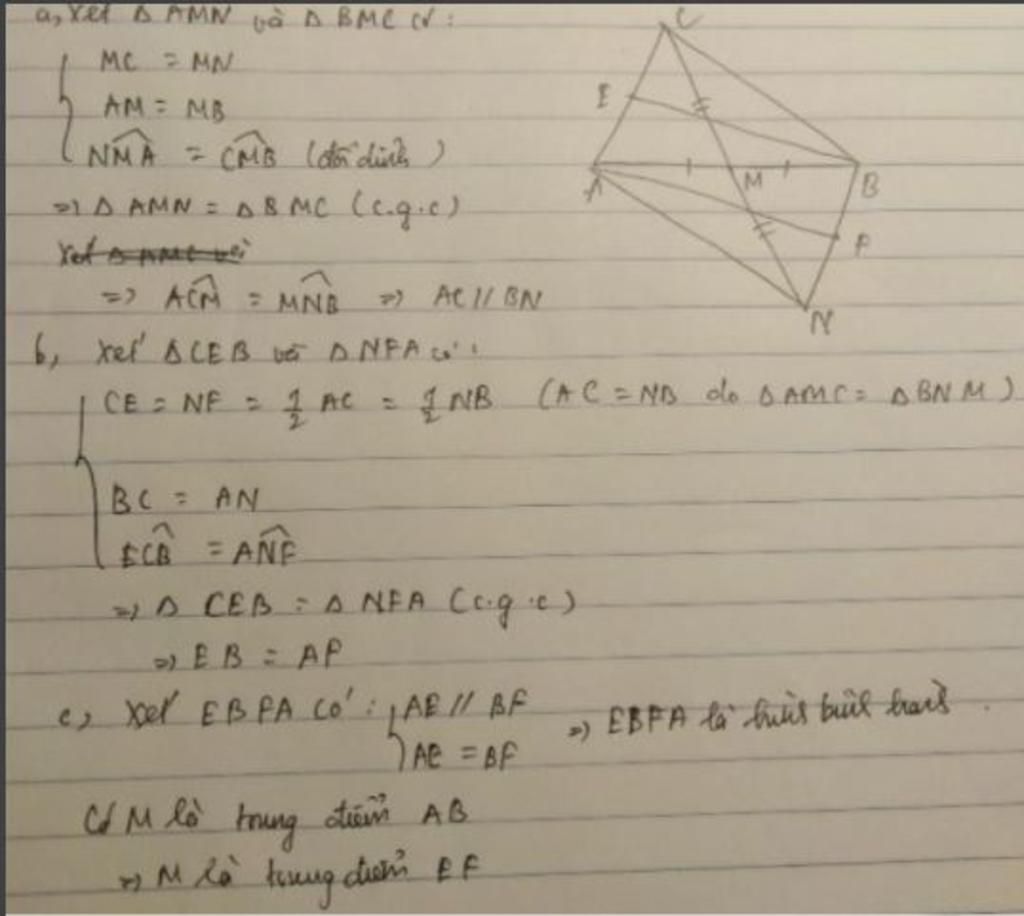 a, xét Δ AMN và Δ BMC có :
MC = MN
AM = MB
NMA = CMB (đối đỉnh)
=> Δ AMN = Δ BMC (c.g.c)
Xét Δ AMC với
=> ACM = MNB => AC // BN
b, xét ΔCEB với ΔNFA có :
CE = NF = 1/2 AC = 1/2 NB (AC = NB do ΔAMC = ΔBNM)
BC = AN
ECB = ANF
=> Δ CEB = Δ NFA (c.g.c)
=> EB = AF
c, Xét EBFA có : AE // BF
AE = BF
=> EBFA là hình bình hành.
Có M là trung điểm AB
=> M là trung điểm EF
C
E
A
M
B
F
N